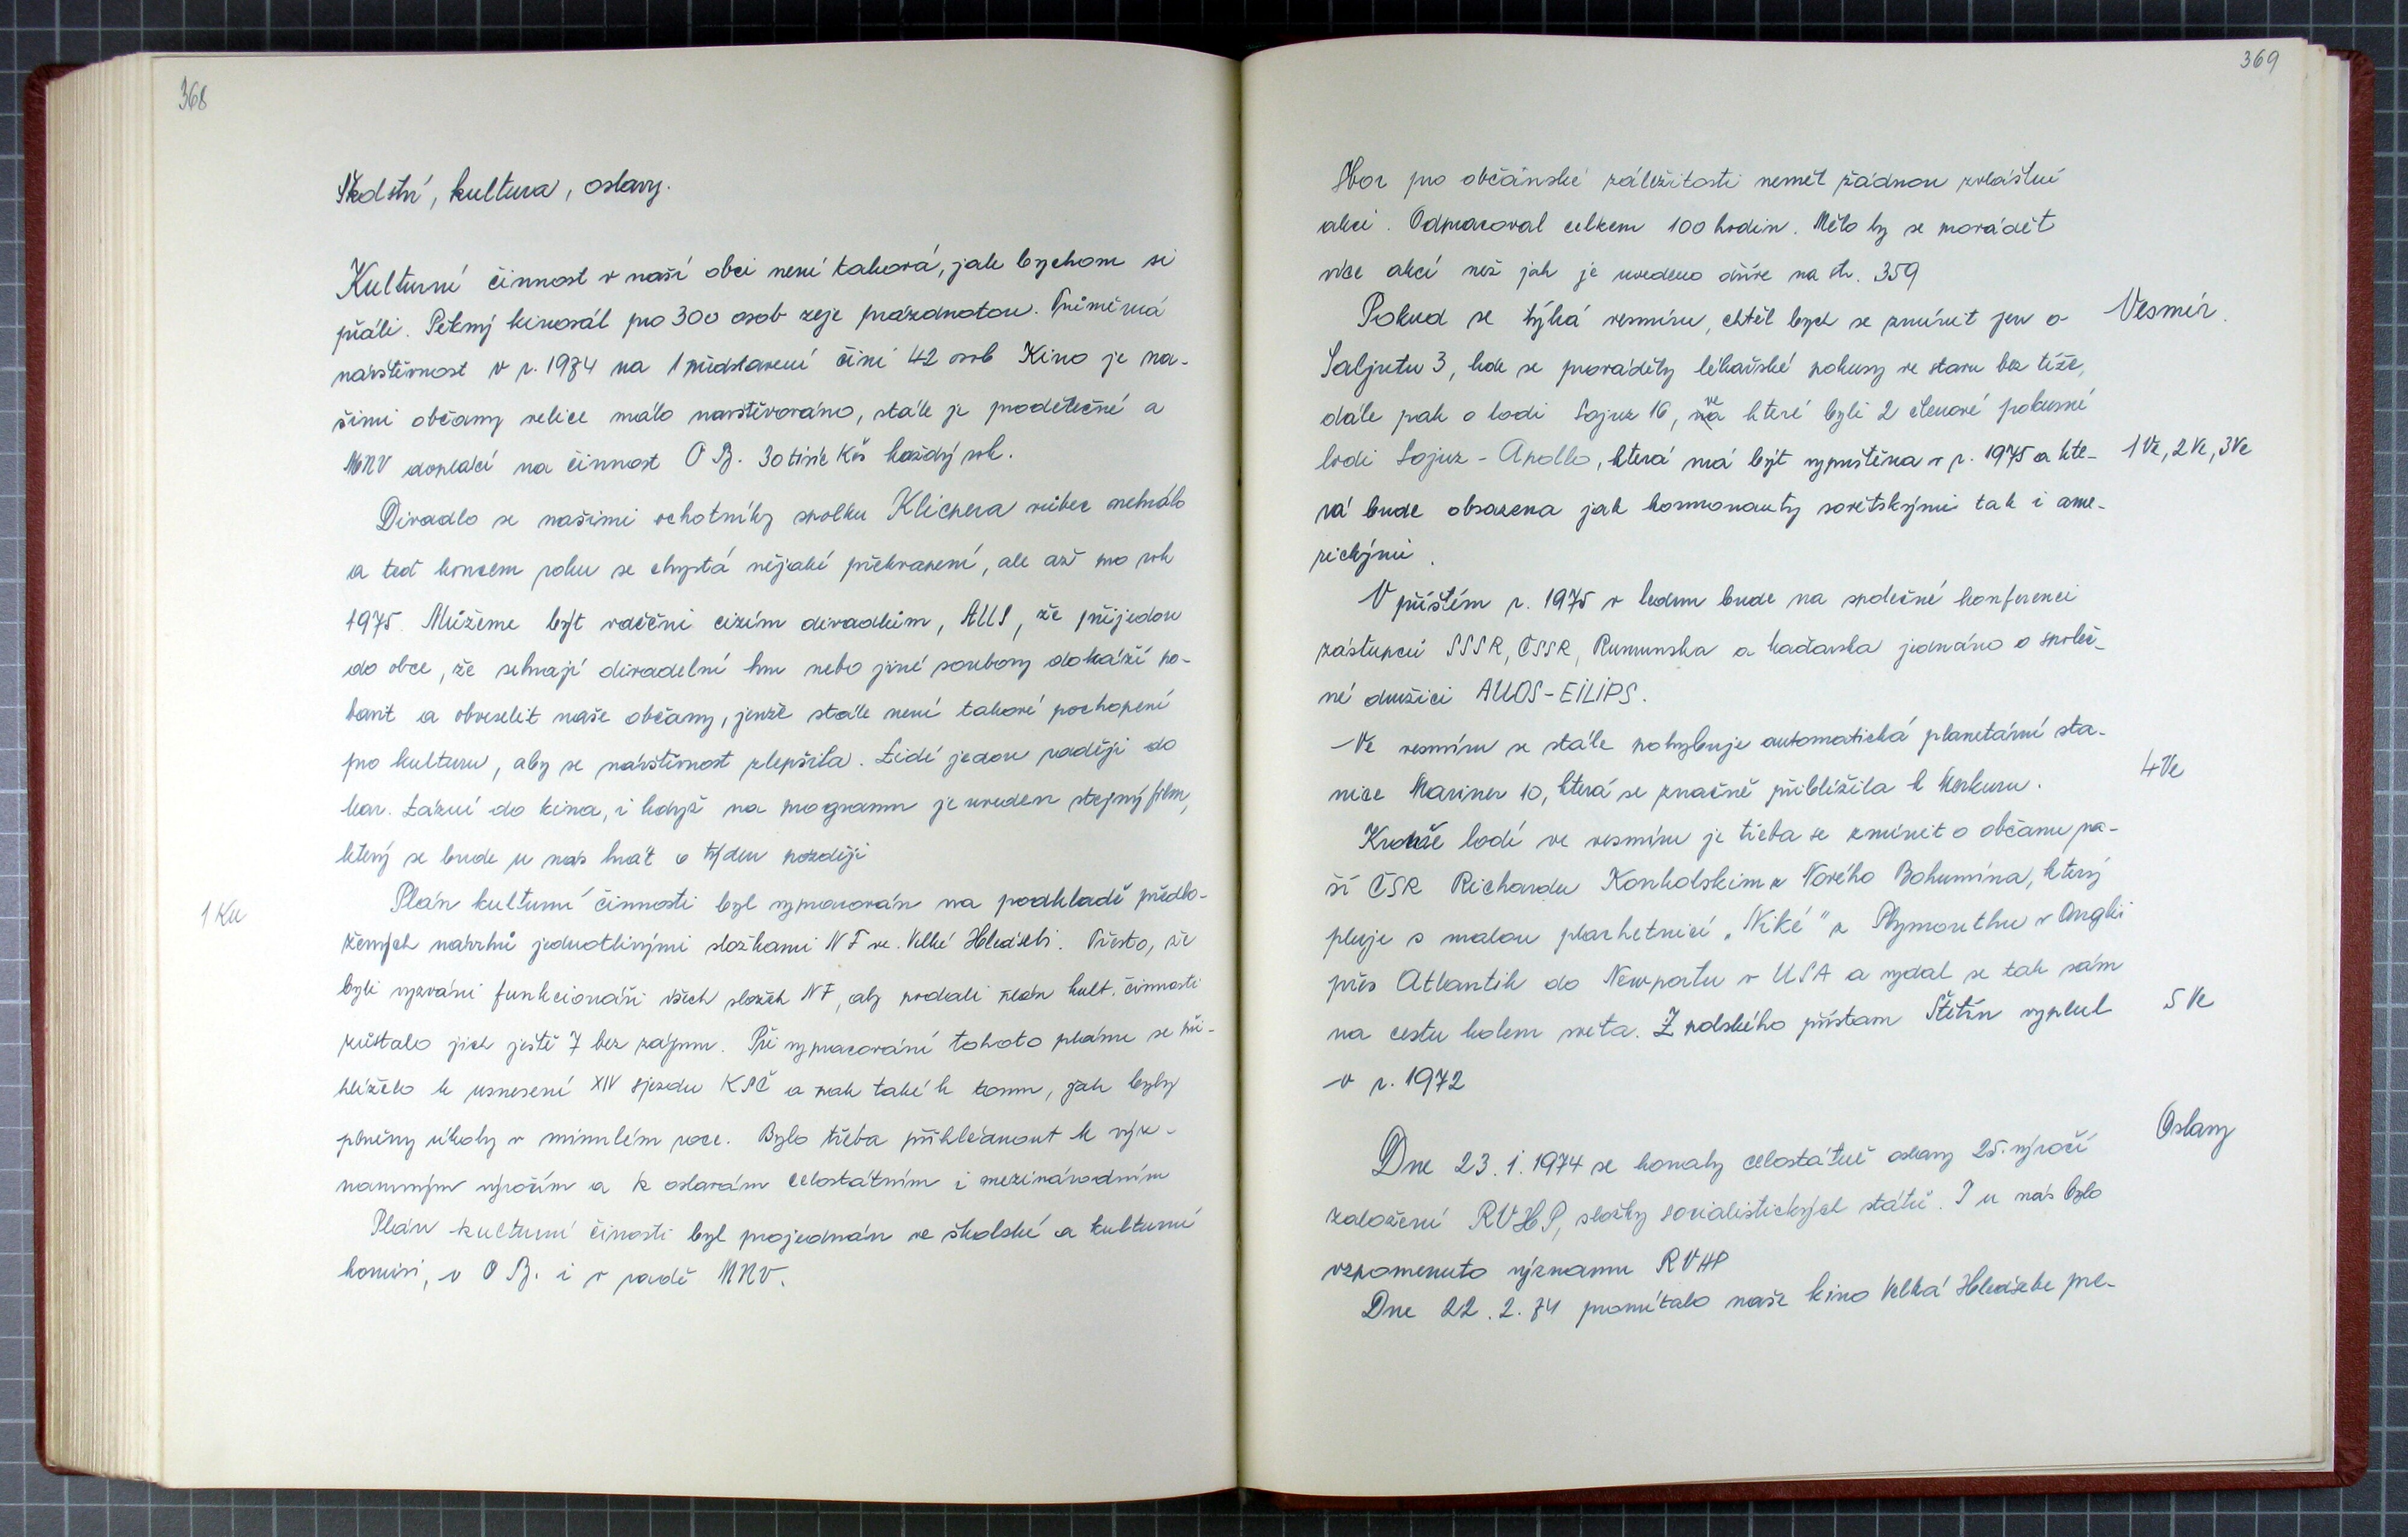 368
Školství, kultura, oslavy.
Kulturní činnost v naší obci není taková, jak bychom si
přáli. Pěkný kinosál pro 300 osob zeje prázdnotou. Průměrná
návštěvnost v r. 1974 na 1 představení činí 42 osob Kino je na-
šimi občany velice málo navštěvováno, stále je prodělečné a
MNV doplácí na činnost O B. 30 tisíc Kčs každý rok.
Divadlo se našimi ochotníky spolku Klicpera vůbec nehrálo
a teď koncem roku se chystá nějaké překvapení, ale až pro rok
1975. Můžeme být vděčni cizím divadlům, AUS, že přijedou
do obce, že sehrají divadelní hru nebo jiné soubory dokáží po-
bavit a obveselit naše občany, jenže stále není takové pochopení
pro kulturu, aby se návštěvnost zlepšila. Lidé jedou raději do
kar. Lázní do kina, i když na programu je uveden stejný film,
který se bude u nás hrát o týden později
1 Ku
Plán kulturní činnosti byl vypracován na podkladě předlo-
žených návrhů jednotlivými složkami NF ve. Velké Hleďsebi. Přesto, že
byli vyzváni funkcionáři všech složek NF, aby podali plán kult. činnosti
zůstalo jich ještě 7 bez zájmu. Při vypracování tohoto plánu se při-
hlíželo k usnesení XIV sjezdu KSČ a pak také k tomu, jak byly
plněny úkoly v minulém roce. Bylo třeba přihlédnout k výz-
namným výročím a k oslavám celostátním i mezinárodním
Plán kulturní činosti byl projednán ve školské a kulturní
komisi, v O B. i v radě MNV.
369
Sbor pro občánské záležitosti neměl žádnou zvláštní
akci. Odpracoval celkem 100 hodin. Mělo by se provádět
více akcí než jak je uvedeno dříve na str. 359
Vesmír.
Pokud se týká vesmíru, chtěl bych se zmínit jen o
Saljutu 3, kde se prováděly lékařské pokusy ve stavu bez tíže,
dále pak o lodi Sojuz 16, ve které byli 2 členové pokusné
lodi Sojuz - Apollo, která má být vypuštěna v r. 1975 a kte-
1 Ve, 2 Ve, 3 Ve
rá bude obsazena jak kosmonauty sovětskými tak i ame-
rickými.
V příštím r. 1975 v lednu bude na společné konferenci
zástupců SSSR, ČSSR, Rumunska a Maďarska jednáno o společ-
né družici AUOS-EILIPS.
Ve vesmíru se stále pohybuje automatická planetární sta-
nice Mariner 10, která se značně přiblížila k Merkuru.
4 Ve
Kromě lodí ve vesmíru je třeba se zmínit o občanu na-
ší ČSR Richardu Konkolskim z Nového Bohumína, který
pluje s malou plachetnicí „Niké" z Plymouthu v Anglii
přes Atlantik do Newportu v USA a vydal se tak sám
na cestu kolem světa. Z polského přístavu Štětín vyplul
5 Ve
v r. 1972
Oslavy
Dne 23. 1. 1974 se konaly celostátně oslavy 25. výročí
založení RVHP, složky socialistických států. I u nás bylo
vzpomenuto významu RVHP
Dne 22. 2. 74 promítalo naše kino Velká Hleďsebe pre-